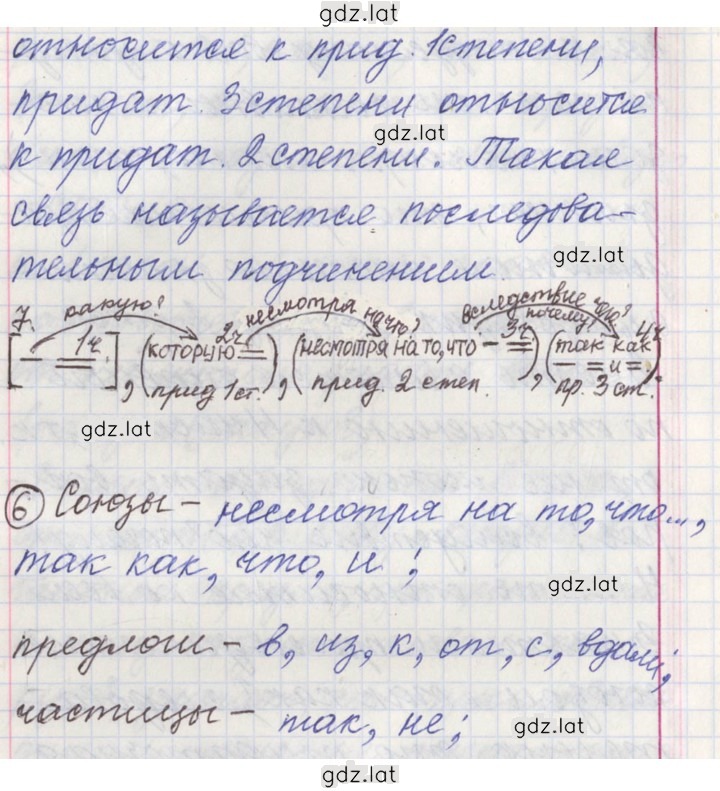 gdz.lat
относится к прид. 1степени,
придат. 3степени относится
gdz.lat
к придат. 2степени. Такая
связь называется последова-
тельным подчинением.
gdz.lat
7. какую? несмотря на что? вследствие чего? почему?
1ч. 2ч. 3ч. 4ч.
[ ], (которую ), (несмотря на то, что ), (так как и )
прид 1ст. прид. 2 степ. пр. 3 ст.
gdz.lat
6 Союзы - несмотря на то, что...,
так как, что, и;
gdz.lat
предлоги - в, из, к, от, с, вдали;
частицы - так, не;
gdz.lat
gdz.lat